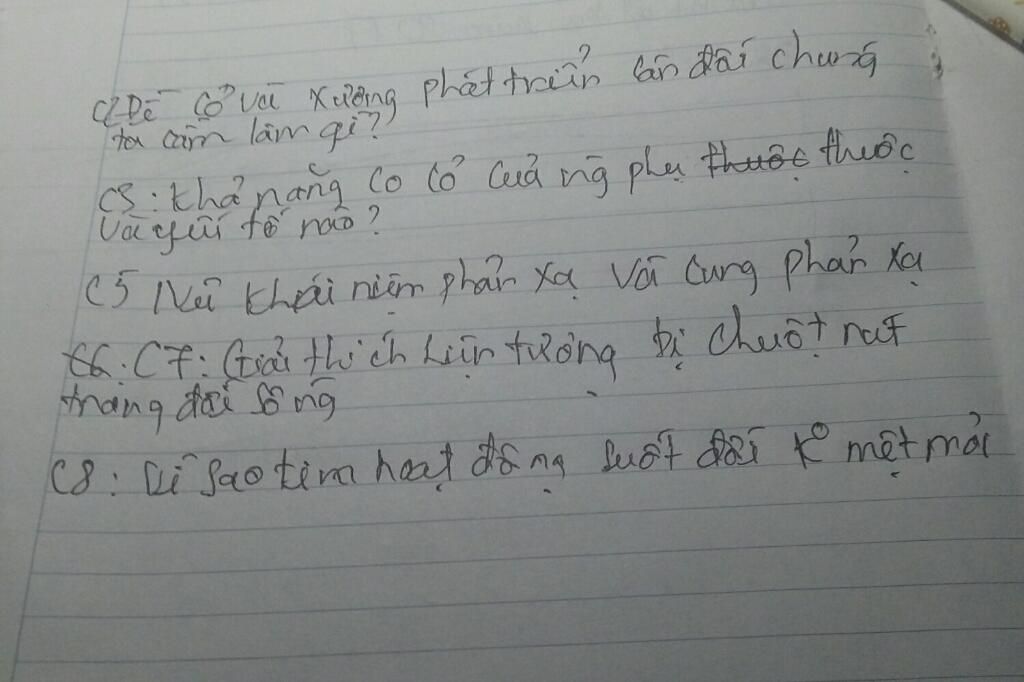 C2 Để cơ và xương phát triển cân đối chúng
ta cần làm gì?
C3: Khả năng co cơ của ng phụ thuộc thuộc
vào yếu tố nào?
C5 Nêu khái niệm phản xạ và cung phản xạ
C6: C7: Giải thích hiện tượng bị chuột rút
trong đời sống
C8: Vì sao tim hoạt động suốt đời k° mệt mỏi